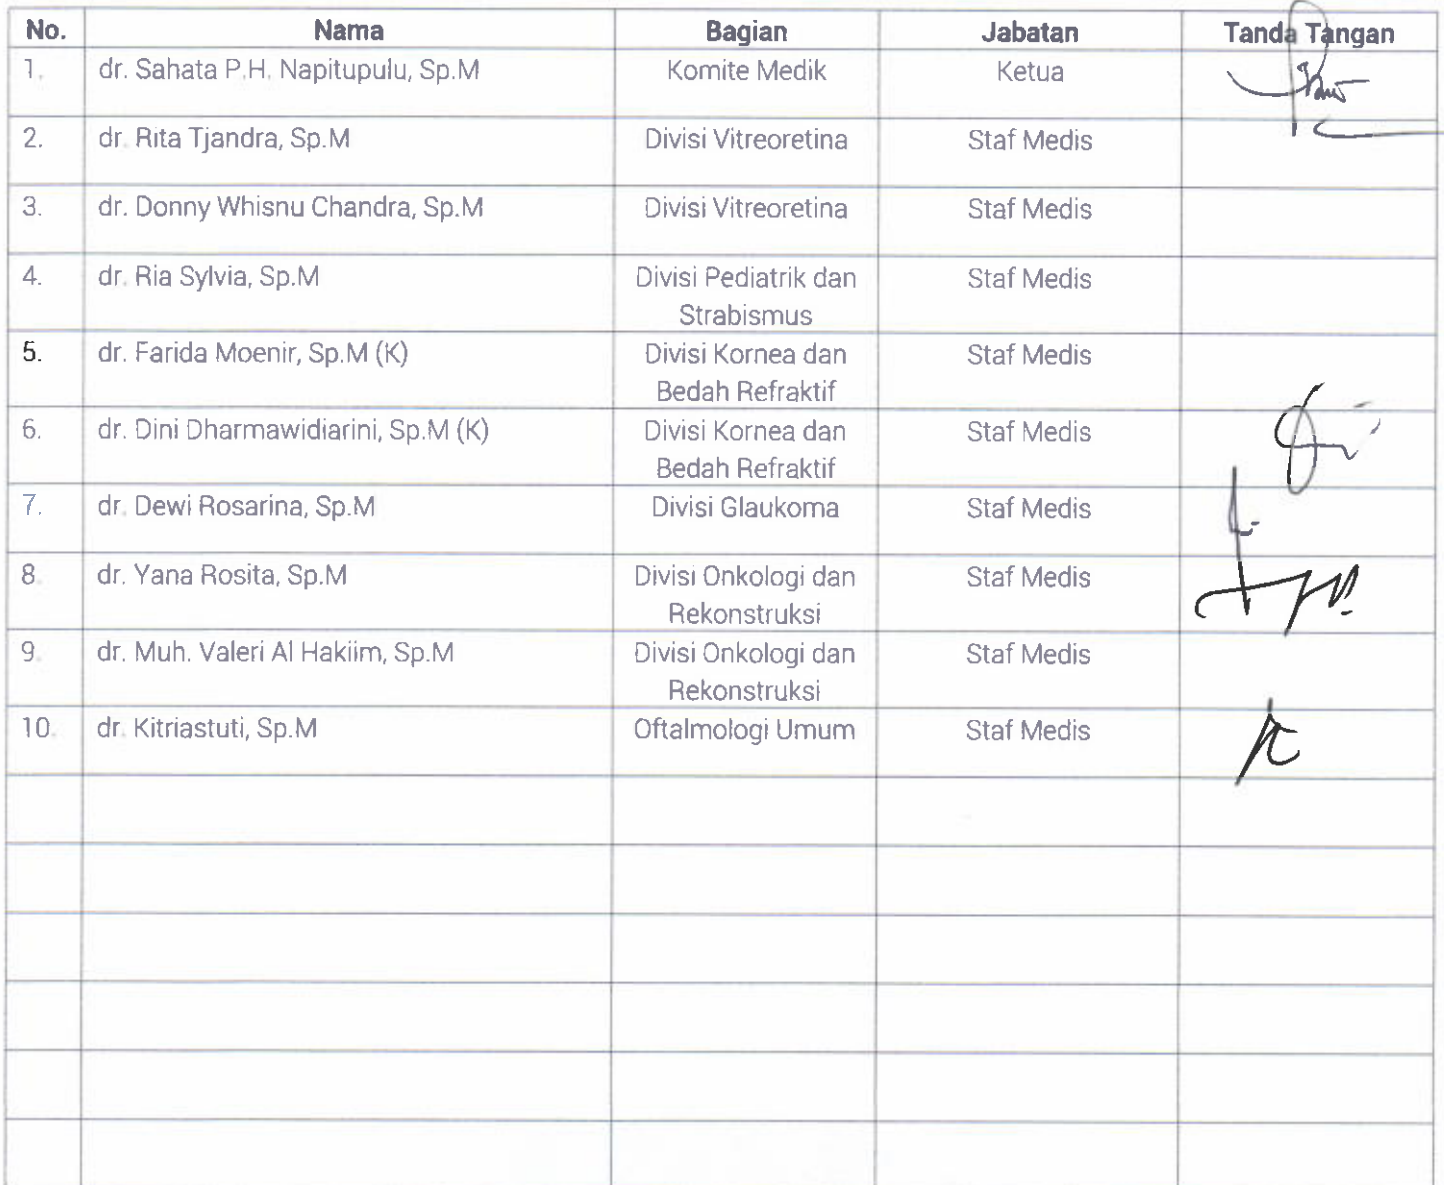 No. Nama Bagian Jabatan Tanda Tangan
1. dr. Sahata P.H. Napitupulu, Sp.M Komite Medik Ketua
2. dr. Rita Tjandra, Sp.M Divisi Vitreoretina Staf Medis
3. dr. Donny Whisnu Chandra, Sp.M Divisi Vitreoretina Staf Medis
4. dr. Ria Sylvia, Sp.M Divisi Pediatrik dan Staf Medis
Strabismus
5. dr. Farida Moenir, Sp.M (K) Divisi Kornea dan Staf Medis
Bedah Refraktif
6. dr. Dini Dharmawidiarini, Sp.M (K) Divisi Kornea dan Staf Medis
Bedah Refraktif
7. dr. Dewi Rosarina, Sp.M Divisi Glaukoma Staf Medis
8. dr. Yana Rosita, Sp.M Divisi Onkologi dan Staf Medis
Rekonstruksi
9. dr. Muh. Valeri Al Hakiim, Sp.M Divisi Onkologi dan Staf Medis
Rekonstruksi
10. dr. Kitriastuti, Sp.M Oftalmologi Umum Staf Medis